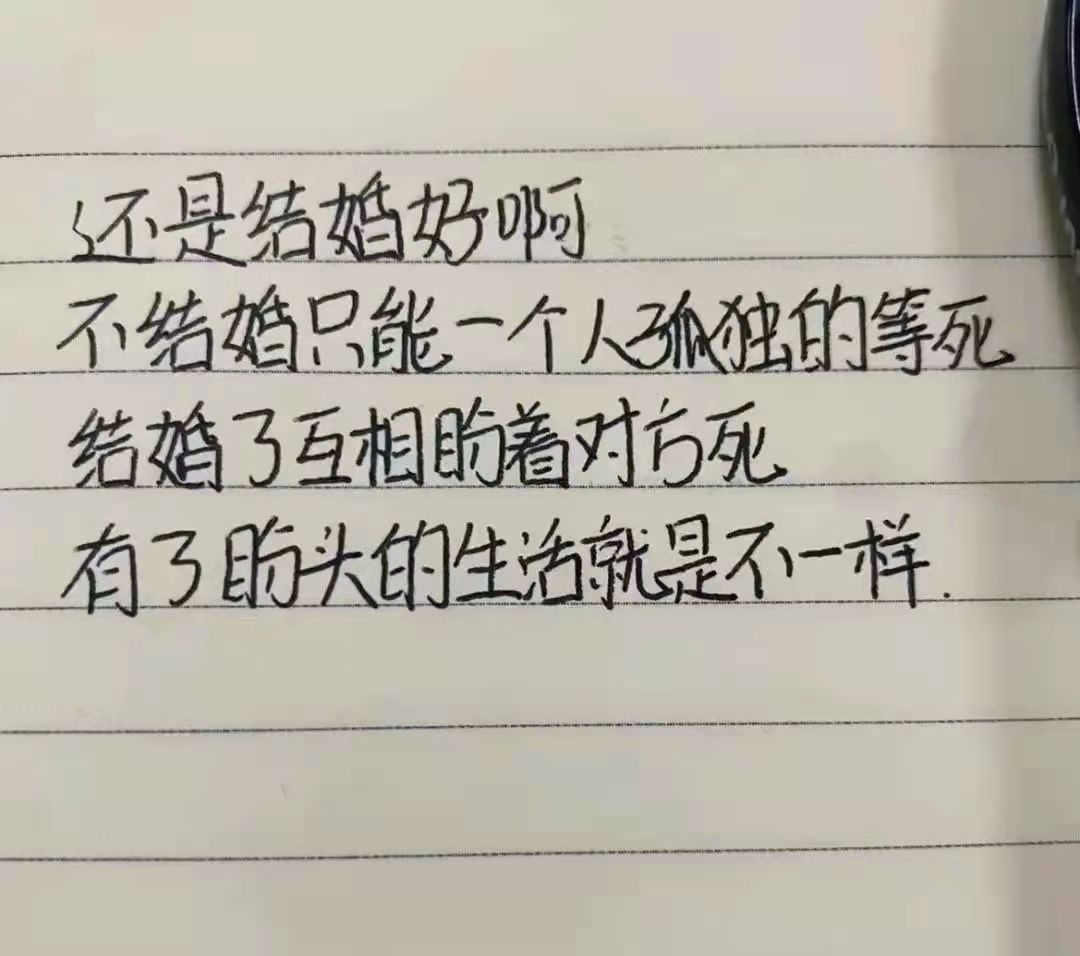 还是结婚好啊
不结婚只能一个人孤独的等死
结婚了互相盼着对方死
有了盼头的生活就是不一样.